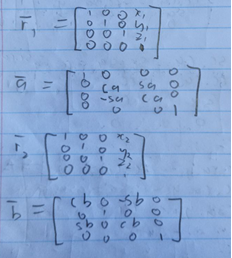 r̄₁ = [ 1 0 0 x₁
0 1 0 y₁
0 0 1 z₁
0 0 0 ]
ā = [ 1 0 0 0
0 ca sa 0
0 -sa ca 0
0 0 0 1 ]
r̄₂ [ 1 0 0 x₂
0 1 0 y₂
0 0 1 z₂
0 0 0 ]
b̄ = [ cb 0 -sb 0
0 1 0 0
sb 0 cb 0
0 0 0 1 ]